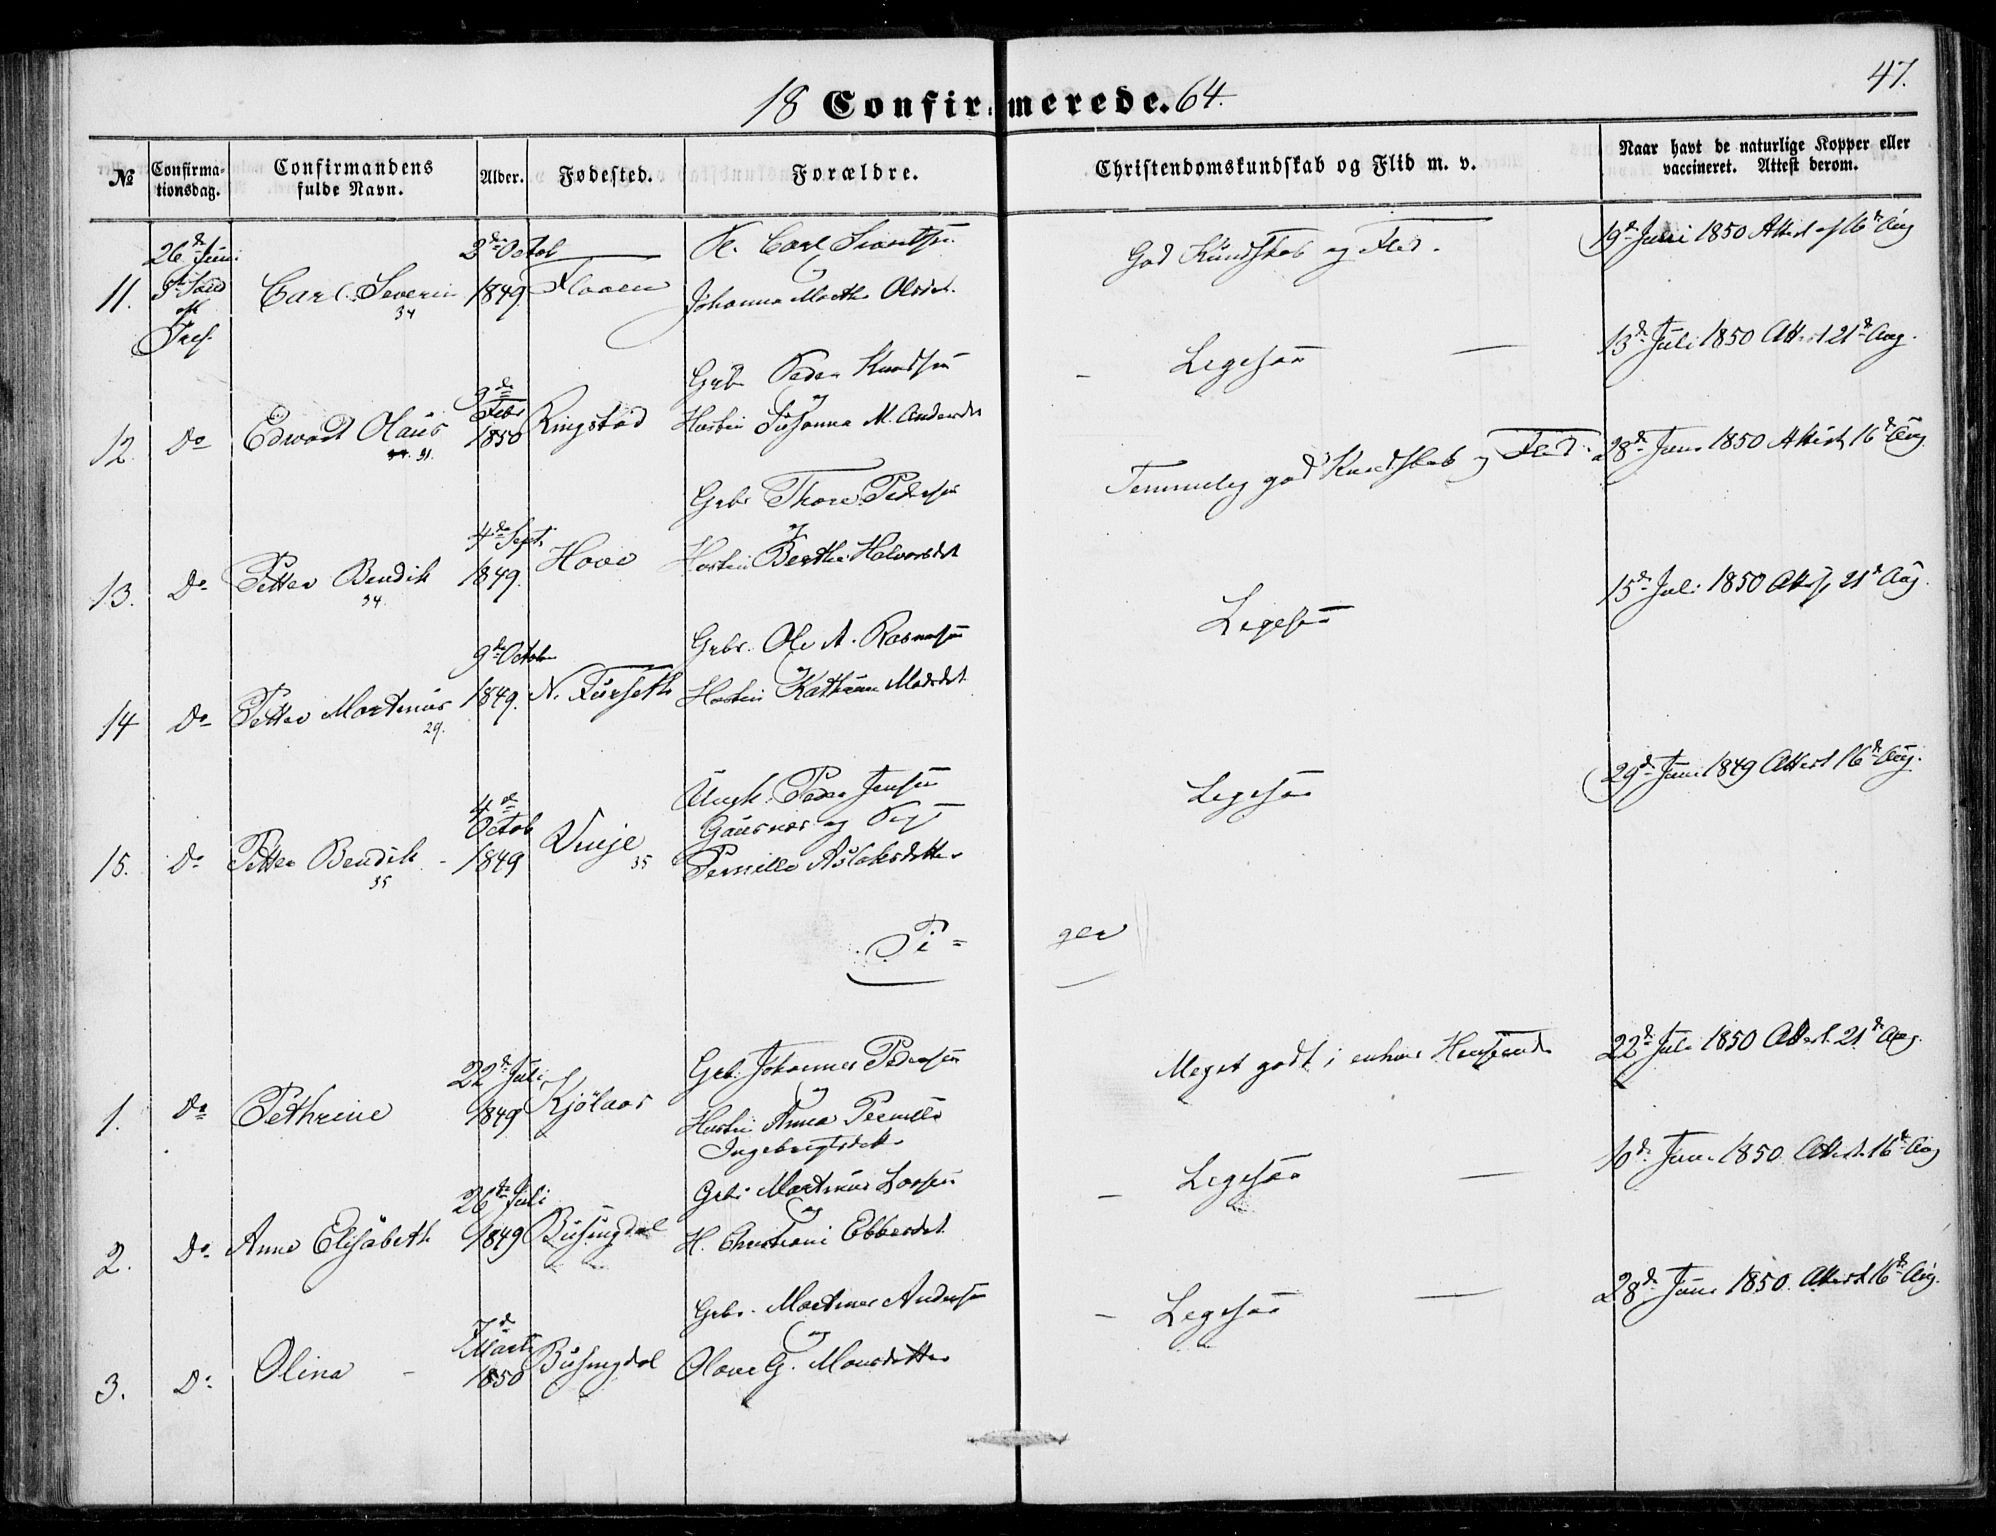 47.
18 Confirmerede. 64.
№
Confirma-
tionsdag.
Confirmandens
fulde Navn.
Alder.
Fødested.
Forældre.
Christendomskundskab og Flid m. v.
Naar havt de naturlige Kopper eller
vaccineret. Attest derom.
11.
26de Juni
Carl Severin
34
1849.
Flaaen
Carl
og
Johanna
God Kundskab og Flid.
19de Juni 1850 Attest af 16de Aug
12.
Do
Edvard Olaus
31.
9de
Febr
1850
Ringstad
Grbr. Peder Knudsen
og
Hustru Susanna M. Andersdt
Ligesaa
13de Juli 1850 Attest 21de Aug.
13.
Do
Petter Bendik
34.
4de Sept.
1849.
Hove
Grbr Thore Pedersen
og
Hustru Berthe Halvorsdt
Temmelig god Kundskab og Flid.
28de Juni 1850 Attest 16de Aug
14
Do
Petter Martinus
29.
9de Octob
1849.
N. Furseth
Grbr. Ole A. Rasmussen
og
Hustru Kathrine Madsdt
Ligesaa
15de Juli 1850 Attest 21de Aug.
15.
Do
Petter Bendik
35
4de
Octob
1849
Vinje
35
Ungk. Peder Jensen
Gausnæs og Pige
Pernille Aslaksdatter
Ligesaa
29de Juni 1849 Attest 16de Aug.
Pi-ger
1.
Do
Pethrine
22de Juli
1849
Kjølaas
Grb. Johannes Pedersen
og
Hustru Anna Pernille
Ingebrigtsdatter
Meget godt i enhver Henseende
22de Juli 1850 Attest 21de Aug.
2.
Do
Anne Elisabeth
26de Juli
1849
Busengdal
Grbr Martinus Larsen
og
H. Christiane Ebbesdt
Ligesaa
10de Juni 1850 Attest 16de Aug
3.
Do
Olina
7de
Marts
1850
Busengdal
Grbr. Martinus Andersen
og
Olave G. Monsdatter
Ligesaa
28de Juni 1850. Attest 16de Aug.